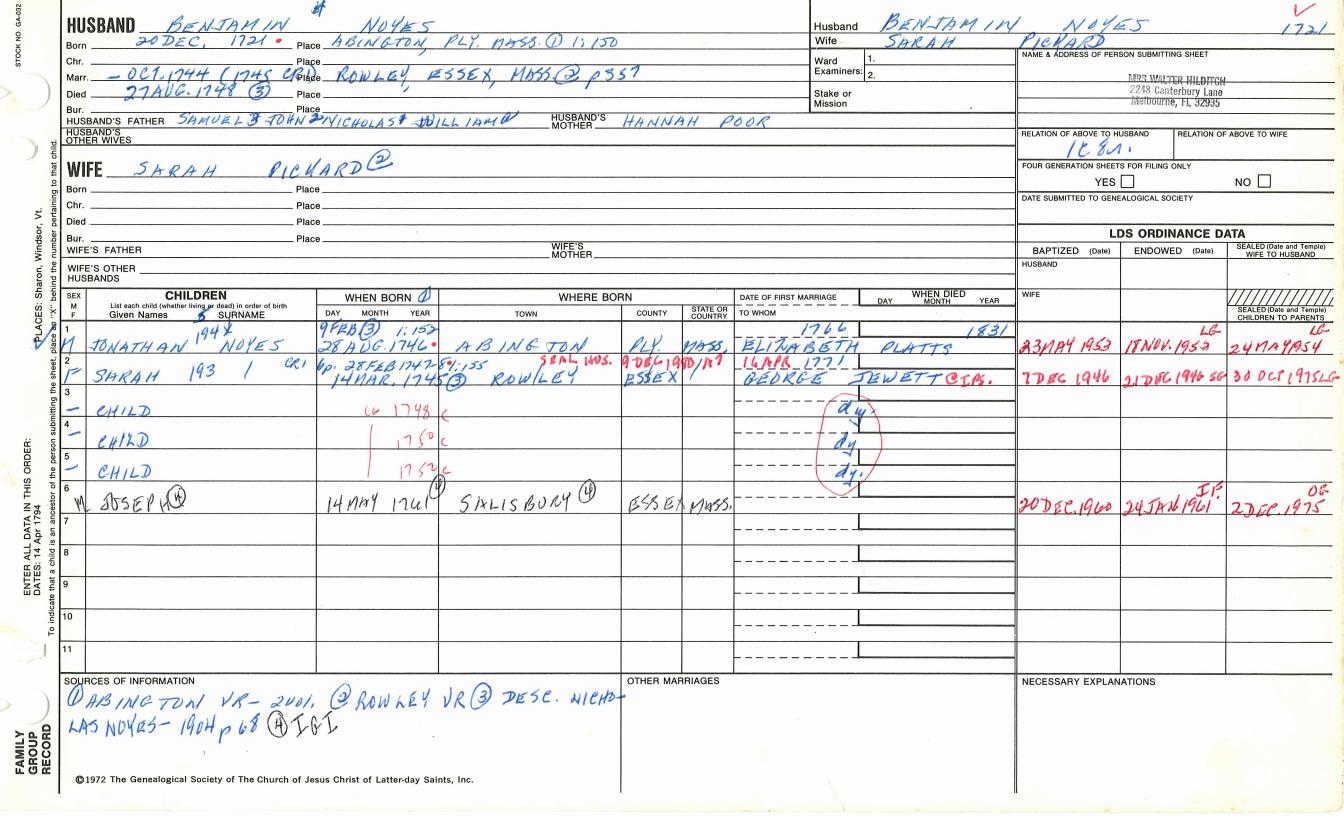 STOCK NO. GA-032
HUSBAND BENJAMIN NOYES
Born 20 DEC. 1721 Place ABINGTON, PLY. MASS. ① 1:150
Chr. Place
Marr. - OCT. 1744 (1745 CR1) Place ROWLEY, ESSEX, MASS ② p357
Died 27 AUG. 1748 ③ Place
Bur. Place
HUSBAND'S FATHER SAMUEL 3 JOHN 2 NICHOLAS 1 WILLIAM HUSBAND'S MOTHER HANNAH POOR
HUSBAND'S OTHER WIVES
WIFE SARAH PICKARD ②
Born Place
Chr. Place
Died Place
Bur. Place
WIFE'S FATHER WIFE'S MOTHER
WIFE'S OTHER HUSBANDS
Husband BENJAMIN NOYES 1721
Wife SARAH PICKARD
Ward Examiners: 1.
2.
Stake or Mission
NAME & ADDRESS OF PERSON SUBMITTING SHEET
MRS WALTER HILDITCH
2248 Canterbury Lane
Melbourne, FL 32935
RELATION OF ABOVE TO HUSBAND RELATION OF ABOVE TO WIFE
FOUR GENERATION SHEETS FOR FILING ONLY
YES NO
DATE SUBMITTED TO GENEALOGICAL SOCIETY
LDS ORDINANCE DATA
BAPTIZED (Date) ENDOWED (Date) SEALED (Date and Temple) WIFE TO HUSBAND
HUSBAND
WIFE
SEALED (Date and Temple) CHILDREN TO PARENTS
SEX M F CHILDREN WHEN BORN ① WHERE BORN DATE OF FIRST MARRIAGE WHEN DIED
List each child (whether living or dead) in order of birth
Given Names SURNAME DAY MONTH YEAR TOWN COUNTY STATE OR COUNTRY TO WHOM DAY MONTH YEAR
1 194X 9 FEB ③ 1:152 1766 1831 LG LG
M JONATHAN NOYES 28 AUG. 1746 ABINGTON PLY MASS. ELIZABETH PLATTS 23 MAY 1953 18 NOV. 1953 24 MAY 1954
2 CR1 bp. 28 FEB 1747-8 1:155 SEAL HUS. 9 DEC 1980/AZ 16 APR 1771
F SARAH 193 / 14 MAR. 1745 ③ ROWLEY ESSEX GEORGE JEWETT 7 DEC 1946 21 DEC 1946 SG 30 OCT 1975 LG
3 - CHILD 1748 c dy.
4 - CHILD 1750 c dy
5 - CHILD 1752 c dy.
6 IF OG
M JOSEPH ④ 14 MAY 1761 ④ SALISBURY ④ ESSEX MASS. 20 DEC. 1960 24 JAN 1961 2 DEC. 1975
7
8
9
10
11
SOURCES OF INFORMATION OTHER MARRIAGES NECESSARY EXPLANATIONS
① ABINGTON VR- 2 vol. ② ROWLEY VR ③ DESC. NICHO-
LAS NOYES- 1904 p 68 ④ IGI
©1972 The Genealogical Society of The Church of Jesus Christ of Latter-day Saints, Inc.
FAMILY GROUP RECORD
ENTER ALL DATA IN THIS ORDER:
DATES: 14 Apr 1794
PLACES: Sharon, Windsor, Vt.
To indicate that a child is an ancestor of the person submitting the sheet, place an "X" behind the number pertaining to that child.